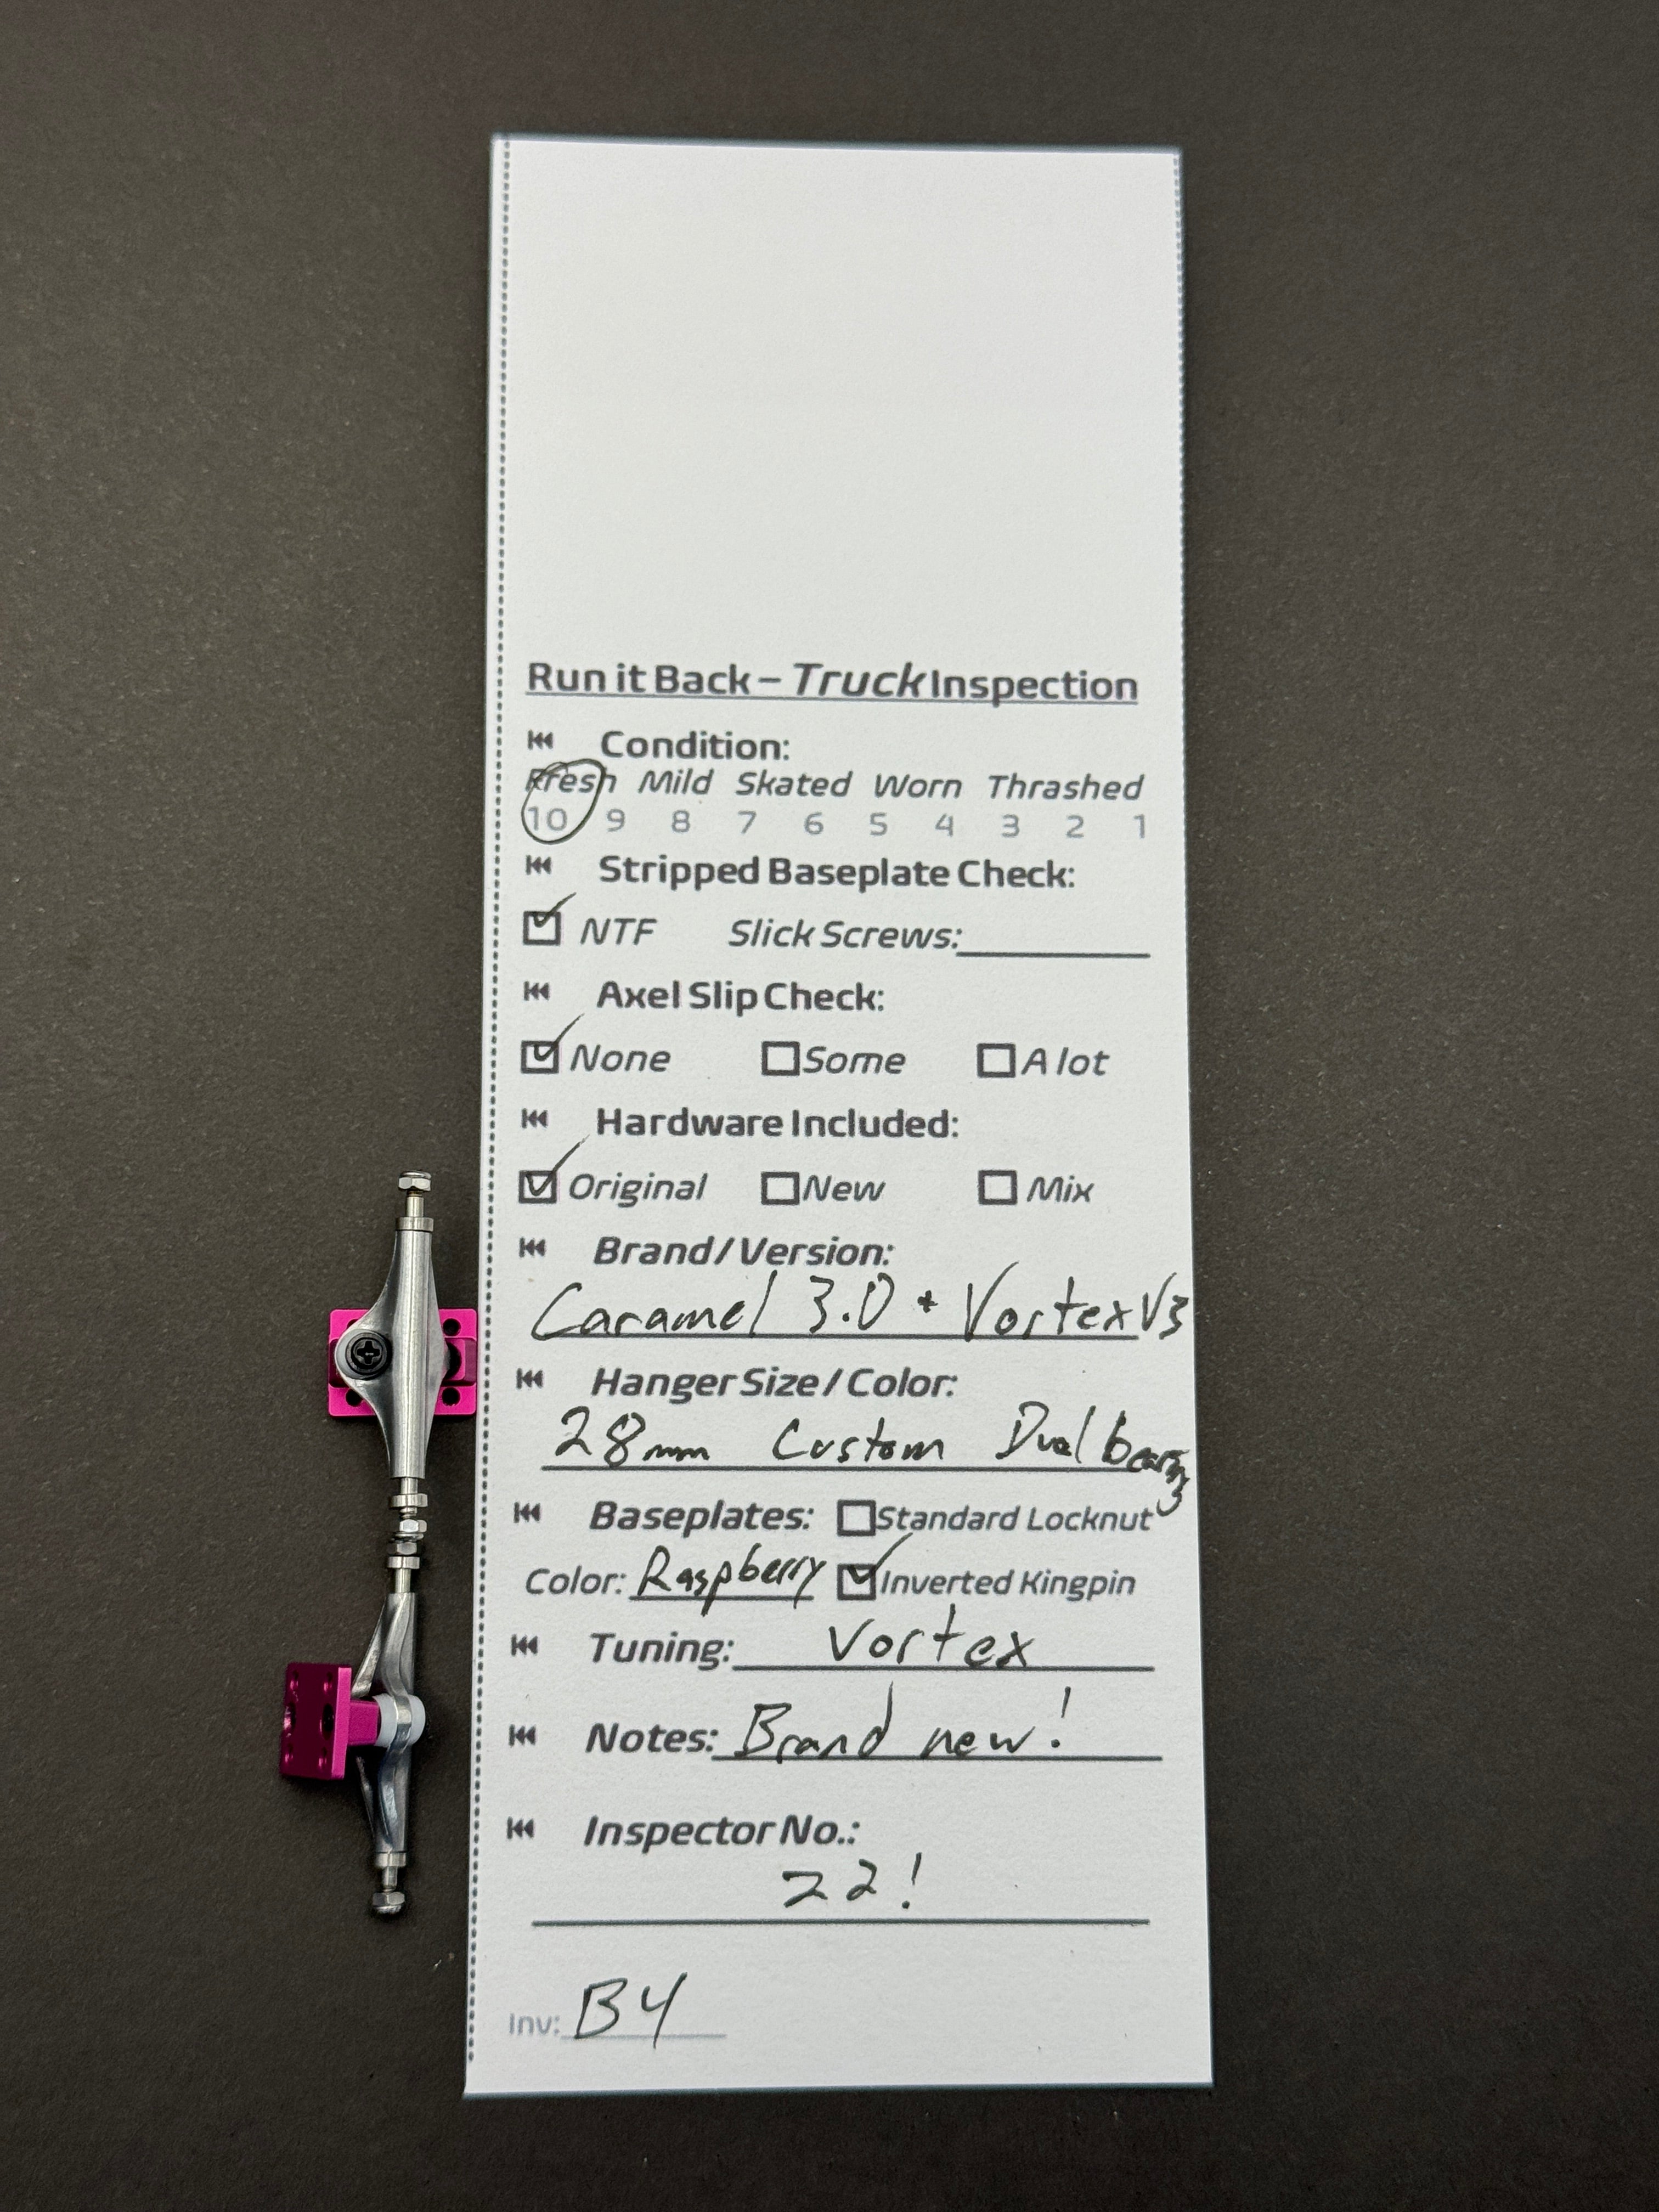 Run it Back – Truck Inspection
Condition:
Fresh Mild Skated Worn Thrashed
10 9 8 7 6 5 4 3 2 1
Stripped Baseplate Check:
NTF Slick Screws:
Axel Slip Check:
None Some A lot
Hardware Included:
Original New Mix
Brand/Version:
Caramel 3.0 + Vortex V3
Hanger Size/Color:
28mm Custom Dual bearing
Baseplates: Standard Locknut
Color: Raspberry Inverted Kingpin
Tuning: Vortex
Notes: Brand new!
Inspector No.:
22!
Inv: B4